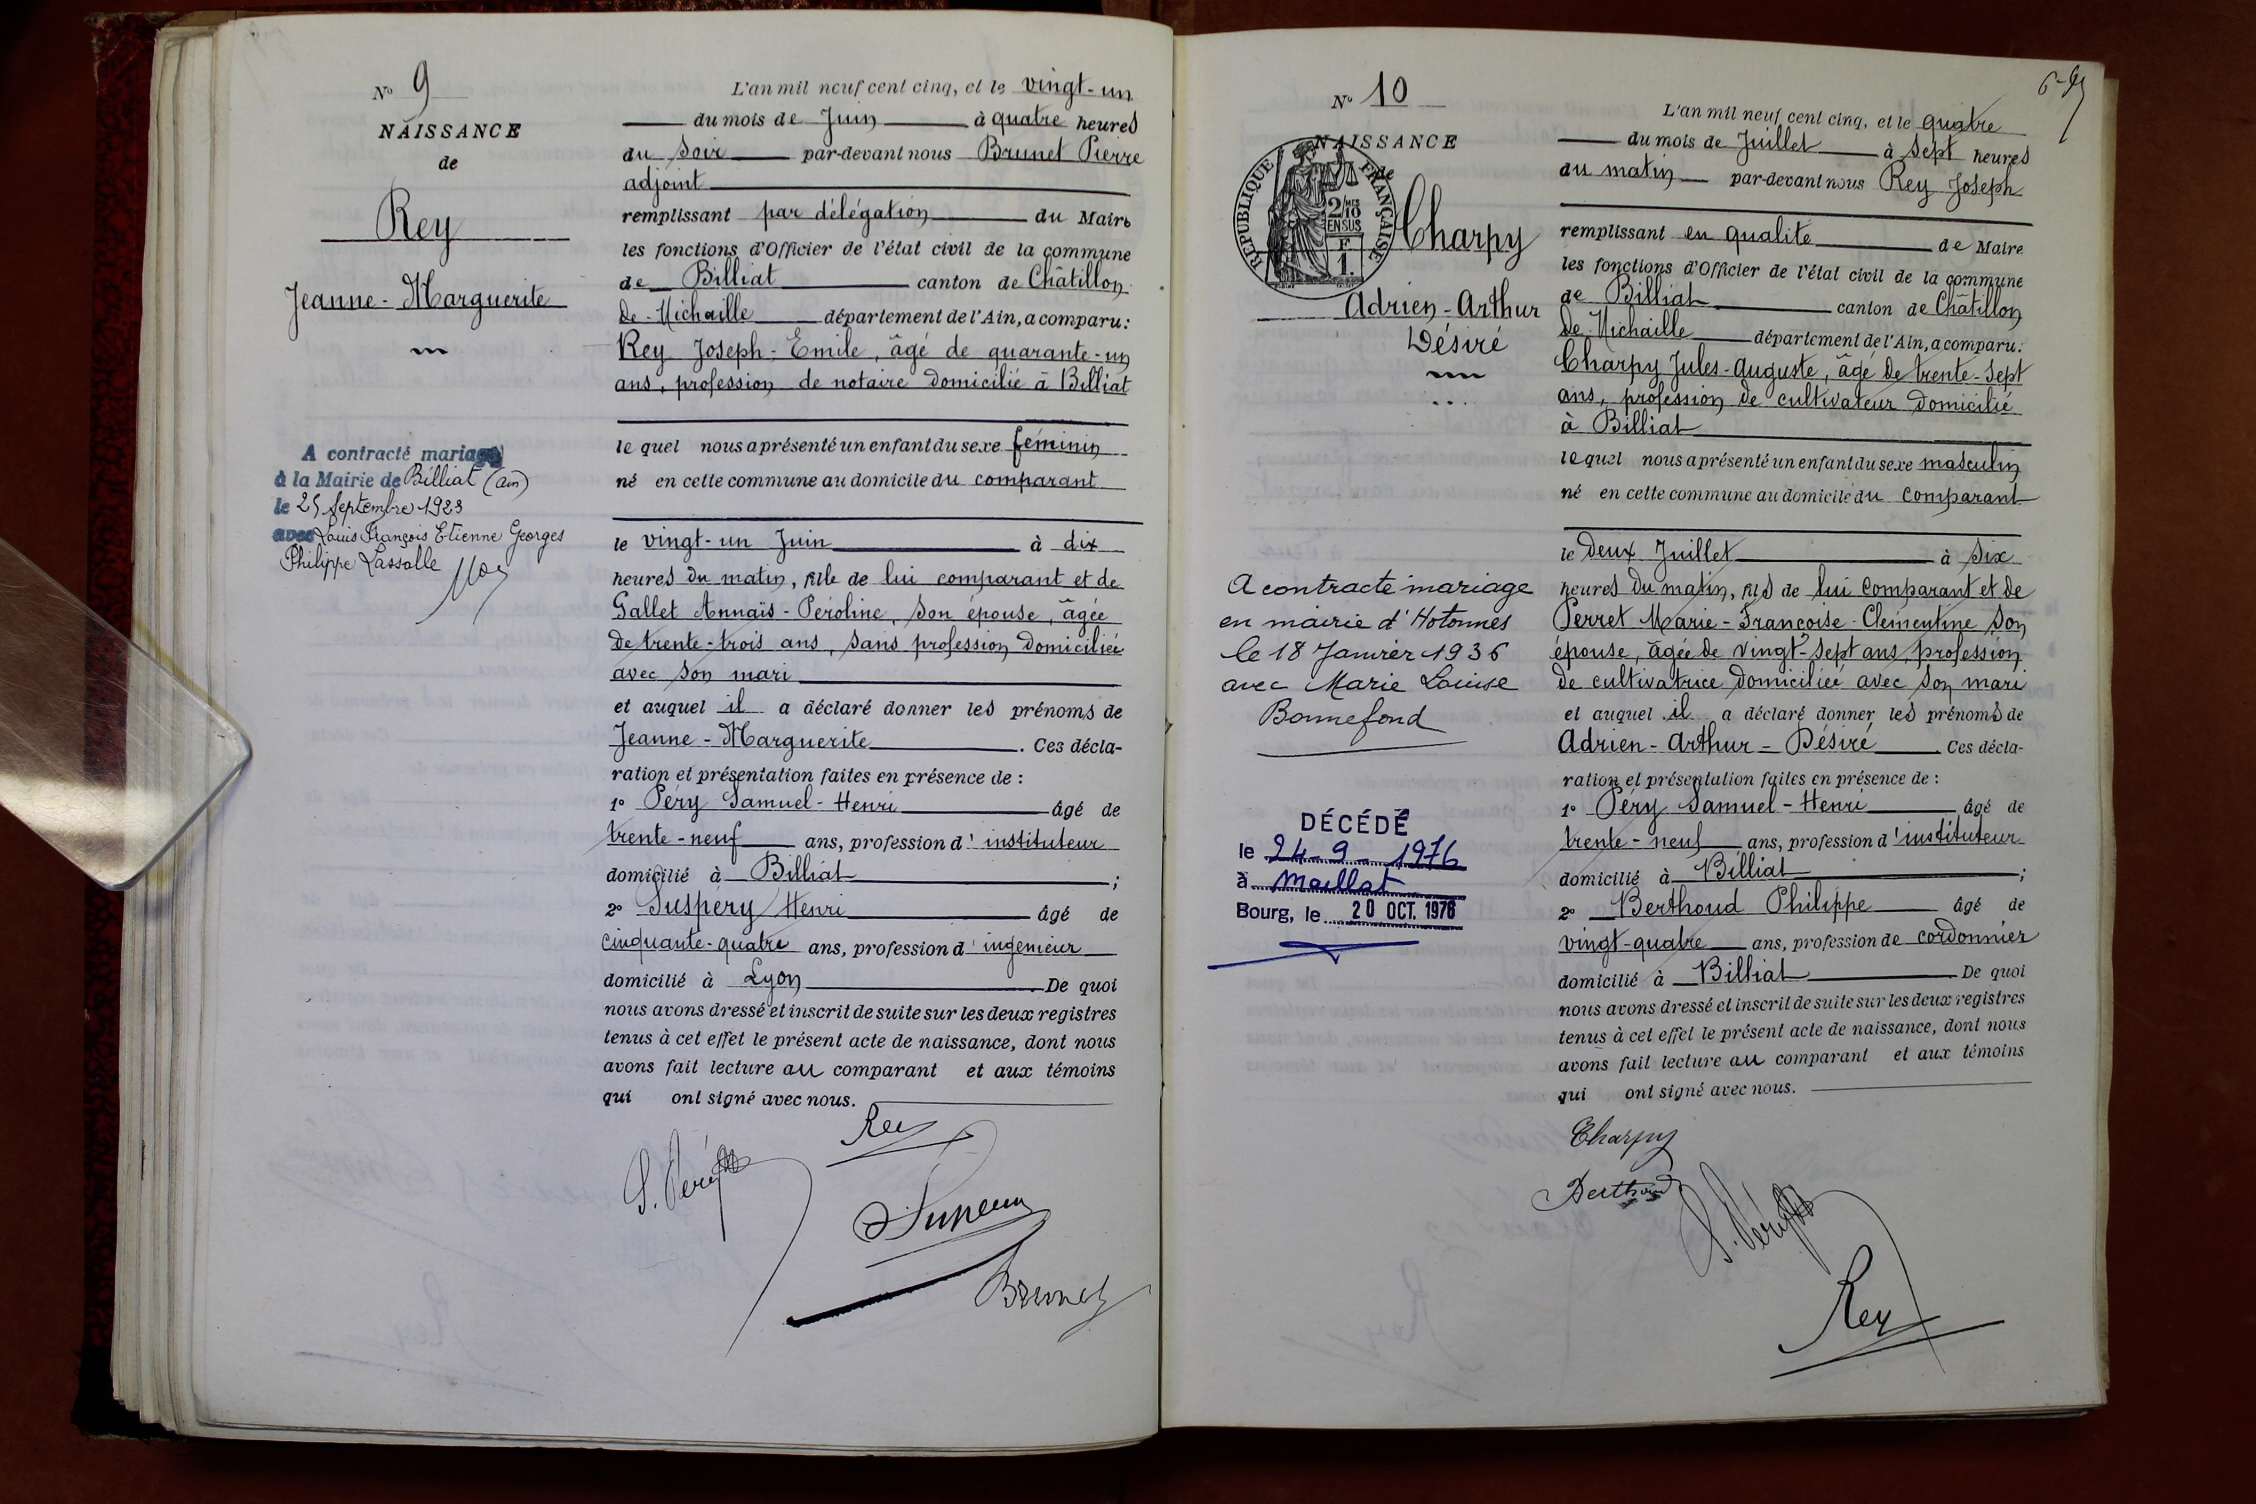 N° 9
NAISSANCE
de
Rey
Jeanne-Marguerite
A contracté mariage
à la Mairie de Billiat (Ain)
le 25 Septembre 1923
avec Louis François Etienne Georges
Philippe Lassalle
L'an mil neuf cent cinq, et le vingt-un
du mois de Juin à quatre heures
du soir par-devant nous Brunet Pierre
adjoint
remplissant par délégation du Maire
les fonctions d'Officier de l'état civil de la commune
de Billiat canton de Châtillon
de-Michaille département de l'Ain, a comparu:
Rey Joseph-Emile, âgé de quarante-un
ans, profession de notaire domicilié à Billiat
le quel nous a présenté un enfant du sexe féminin
né en cette commune au domicile du comparant
le vingt-un Juin à dix
heures du matin, fille de lui comparant et de
Gallet Annaïs-Péroline, son épouse, âgée
de trente-trois ans, sans profession domiciliée
avec son mari
et auquel il a déclaré donner les prénoms de
Jeanne-Marguerite. Ces décla-
ration et présentation faites en présence de :
1° Péry Samuel-Henri âgé de
trente-neuf ans, profession d'instituteur
domicilié à Billiat ;
2° Suspéry Henri âgé de
cinquante-quatre ans, profession d'ingénieur
domicilié à Lyon. De quoi
nous avons dressé et inscrit de suite sur les deux registres
tenus à cet effet le présent acte de naissance, dont nous
avons fait lecture au comparant et aux témoins
qui ont signé avec nous.
Rey
S. Péry
Brunet
6-
N° 10
NAISSANCE
de
RÉPUBLIQUE FRANÇAISE
2/10
EN SUS
F.
1.
Charpy
Adrien-Arthur
Désiré
A contracté mariage
en mairie d'Hotonnes
le 18 Janvier 1936
avec Marie Louise
Bonnefond
DÉCÉDÉ
le 24-9-1976
à Maillat
Bourg, le 20 OCT. 1976
L'an mil neuf cent cinq, et le quatre
du mois de Juillet à sept heures
du matin par-devant nous Rey Joseph
remplissant en qualité de Maire
les fonctions d'Officier de l'état civil de la commune
de Billiat canton de Châtillon
de-Michaille département de l'Ain, a comparu:
Charpy Jules-Auguste, âgé de trente-sept
ans, profession de cultivateur domicilié
à Billiat
le quel nous a présenté un enfant du sexe masculin
né en cette commune au domicile du comparant
le deux Juillet à six
heures du matin, fils de lui comparant et de
Perret Marie-Françoise-Clémentine son
épouse, âgée de vingt-sept ans, profession
de cultivatrice domiciliée avec son mari
et auquel il a déclaré donner les prénoms de
Adrien-Arthur-Désiré. Ces décla-
ration et présentation faites en présence de :
1° Péry Samuel-Henri âgé de
trente-neuf ans, profession d'instituteur
domicilié à Billiat ;
2° Berthoud Philippe âgé de
vingt-quatre ans, profession de cordonnier
domicilié à Billiat De quoi
nous avons dressé et inscrit de suite sur les deux registres
tenus à cet effet le présent acte de naissance, dont nous
avons fait lecture au comparant et aux témoins
qui ont signé avec nous.
Charpy
Berthoud
S. Péry
Rey